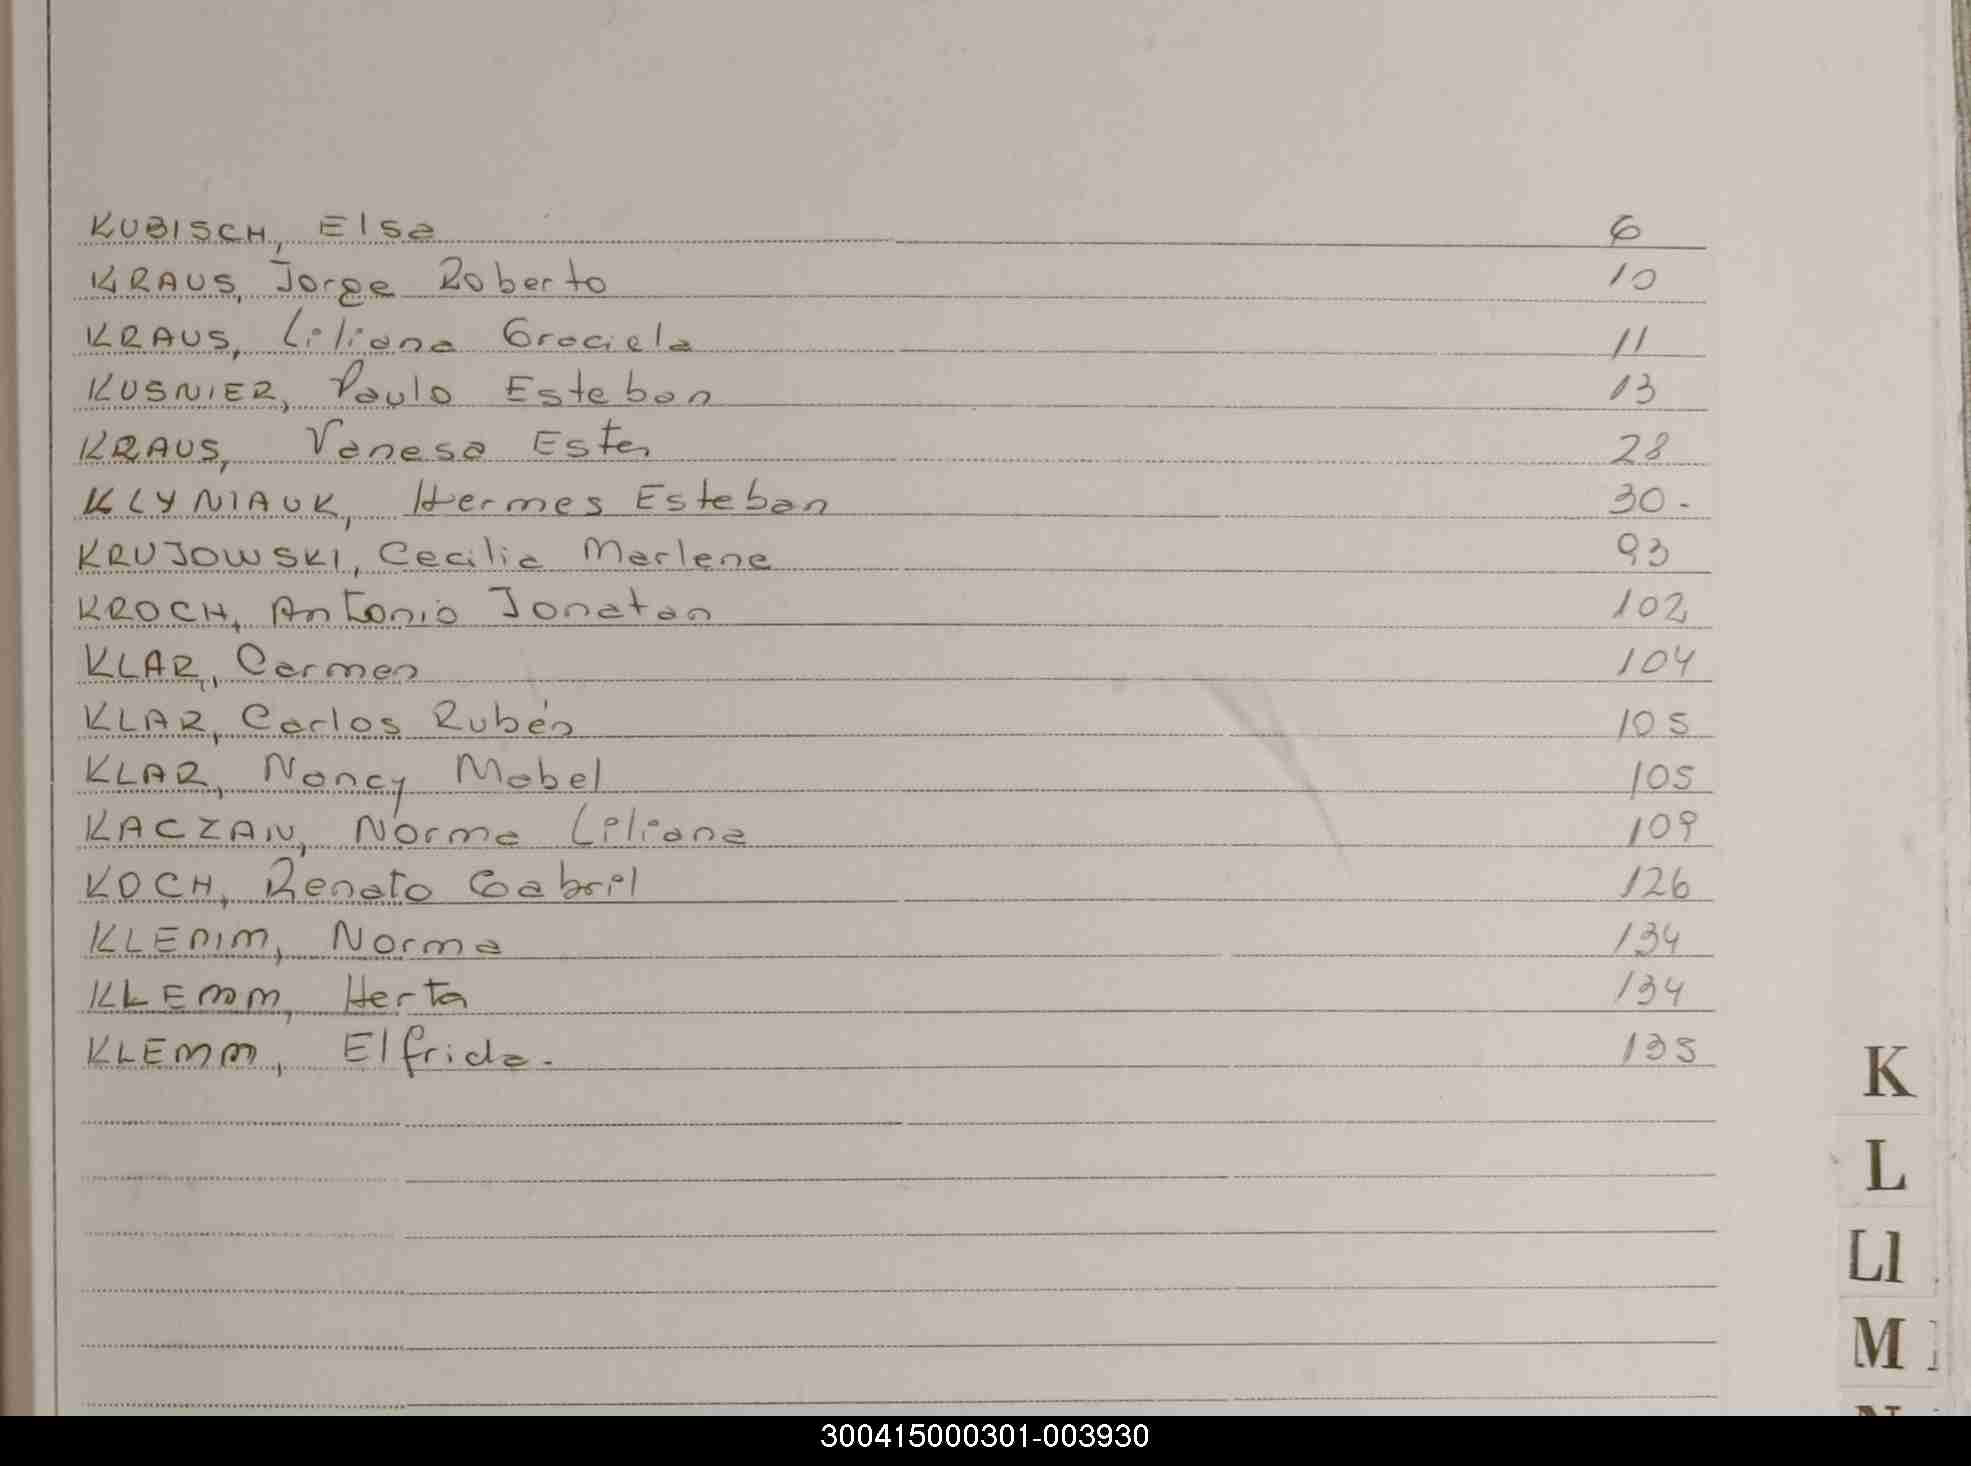 KUBISCH, Elsa 6
KRAUS, Jorge Roberto 10
KRAUS, Liliana Graciela 11
KUSNIER, Paulo Esteban 13
KRAUS, Vanesa Ester 28
KLYNIAUK, Hermes Esteban 30.
KRUJOWSKI, Cecilia Marlene 93
KROCH, Antonio Jonatan 102
KLAR, Carmen 104
KLAR, Carlos Rubén 105
KLAR, Nancy Mabel 105
KACZAN, Norma Liliana 109
KOCH, Renato Gabril 126
KLEMM, Norma 134
KLEMM, Herta 134
KLEMM, Elfrida. 135
K
L
Ll
M
N
300415000301-003930